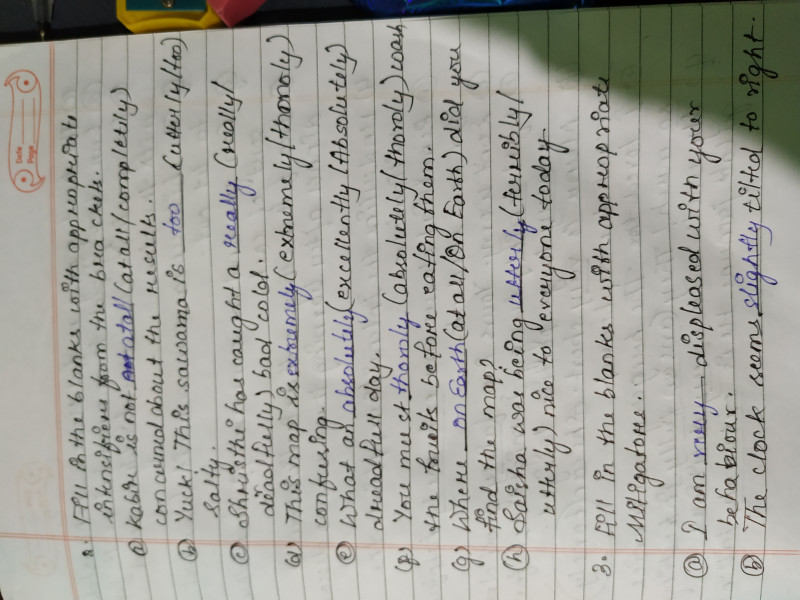 Date
Page
2. Fill in the blanks with appropriate
intensifiers from the brackets.
a) Kabir is not at all (at all/completely)
concerned about the results.
b) Yuck! This sausama is too (utterly/too)
salty.
c) Shristhi has caught a really (really/
dreadfully) bad cold.
d) This map is extremely (extremely/thoroly)
confusing.
e) What an absolutely (excellently/Absolutely)
dreadfull day.
(f) You must thoroly (absolutely/thoroly) wash
the fruits before eating them.
(g) Where on Earth (at all/On Earth) did you
find the map?
(h) Saisha was being utterly (terribly/
utterly) nice to everyone today.
3. Fill in the blanks with appropriate
Mitigators.
a) I am very displeased with your
behabiour.
b) The clock seems slightly tilted to right.